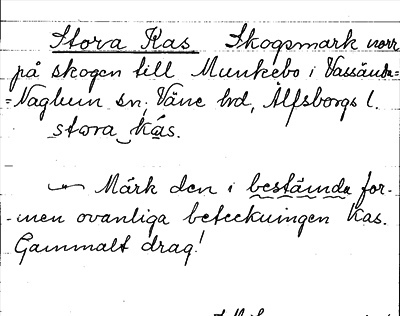 Stora Kas Skogsmark norr
på skogen till Munkebo i Vassända=
=Naglum sn, Väne hd, Älfsborgs l.
stora kás.
Märk den i bestämda for-
-men ovanliga beteckningen Kas.
Gammalt drag!